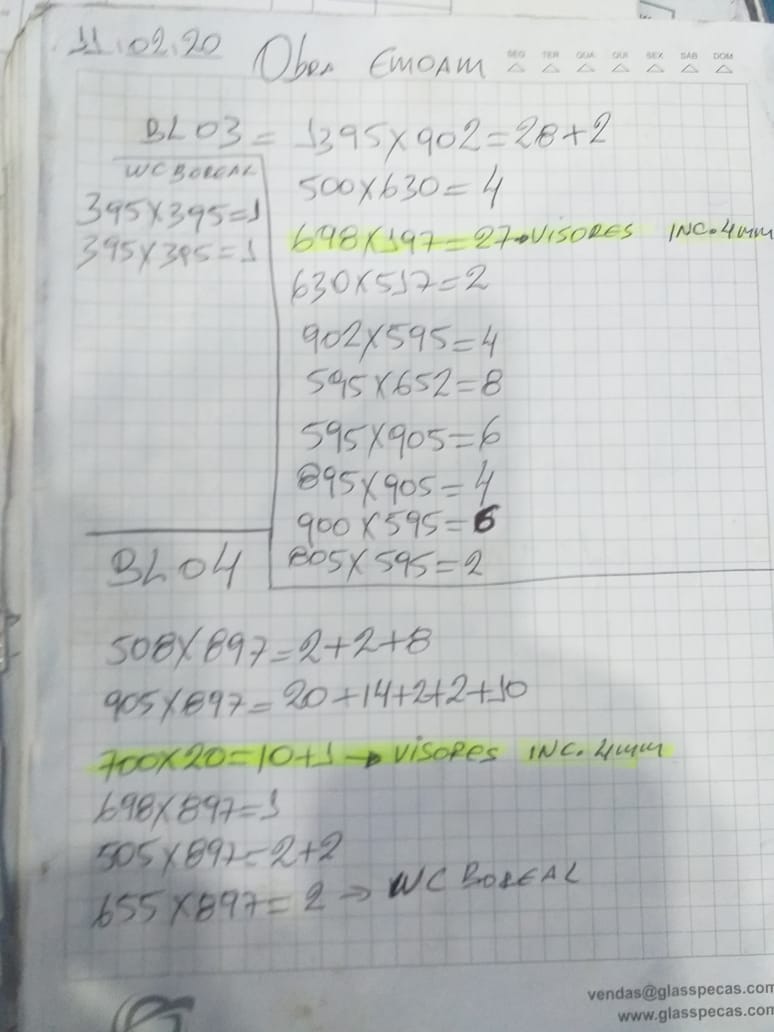 11.02.20 Obra EMOAM SEG TER QUA QUI SEX SAB DOM
BL03 = 1395x902=28+2
WC BOREAL
395x395=1
395x395=1
500x630=4
698x197=27→VISORES INC.4mm
630x517=2
902x595=4
595x652=8
595x905=6
895x905=4
900x595=6
805x595=2
BL04
508x897=2+2+8
905x897=20+14+2+2+10
700x20=10+1→VISORES INC.4mm
698x897=1
505x897=2+2
655x897=2→WC BOREAL
vendas@glasspecas.com
www.glasspecas.com